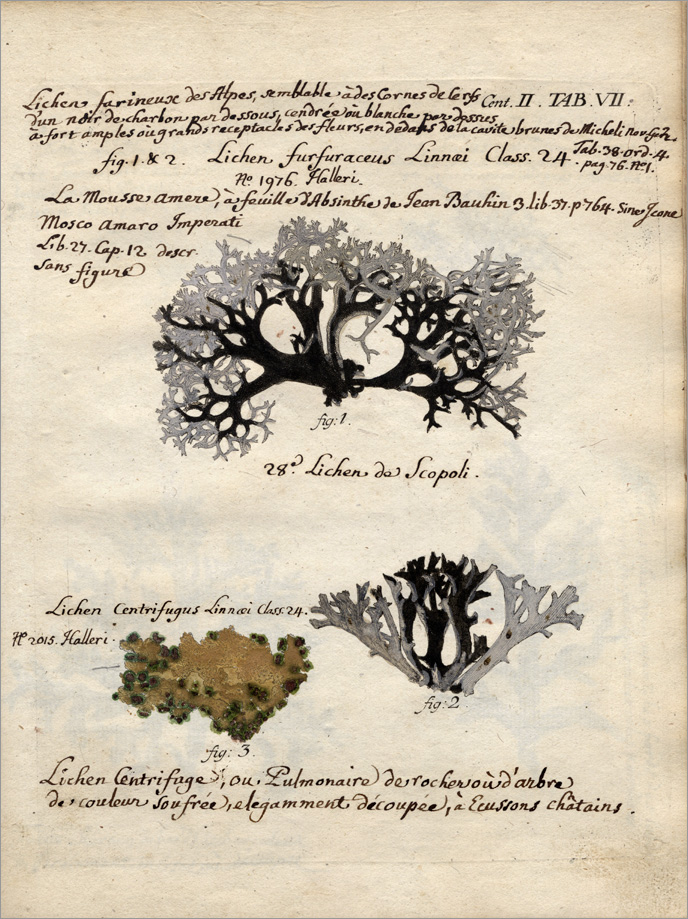 Lichen farineux des Alpes, semblable à des Cornes de Cerfs Cent. II. TAB. VII.
d'un noir de charbon par dessous, cendrée ou blanche par dessus
à fort amples ou grands receptacles des fleurs, en dedans de la cavité brunes de Micheli nov. gen.
Tab. 38. ord. 4.
fig. 1. & 2. Lichen furfuraceus Linnæi Class. 24. pag. 76. No. 1.
No 1976. Halleri.
La Mousse amere, à feuille d'Absinthe de Jean Bauhin 3. lib. 37. p 764. Sine Icone
Mosco amaro Imperati
Lib. 27. Cap. 12 descr.
sans figure
fig: 1.
28.e Lichen de Scopoli.
Lichen Centrifugus Linnæi Class. 24.
No 2015. Halleri.
fig: 2.
fig: 3.
Lichen Centrifuge, ou Pulmonaire de rocher où d'arbre
de couleur soufrée, elegamment découpée, à Ecussons châtains.